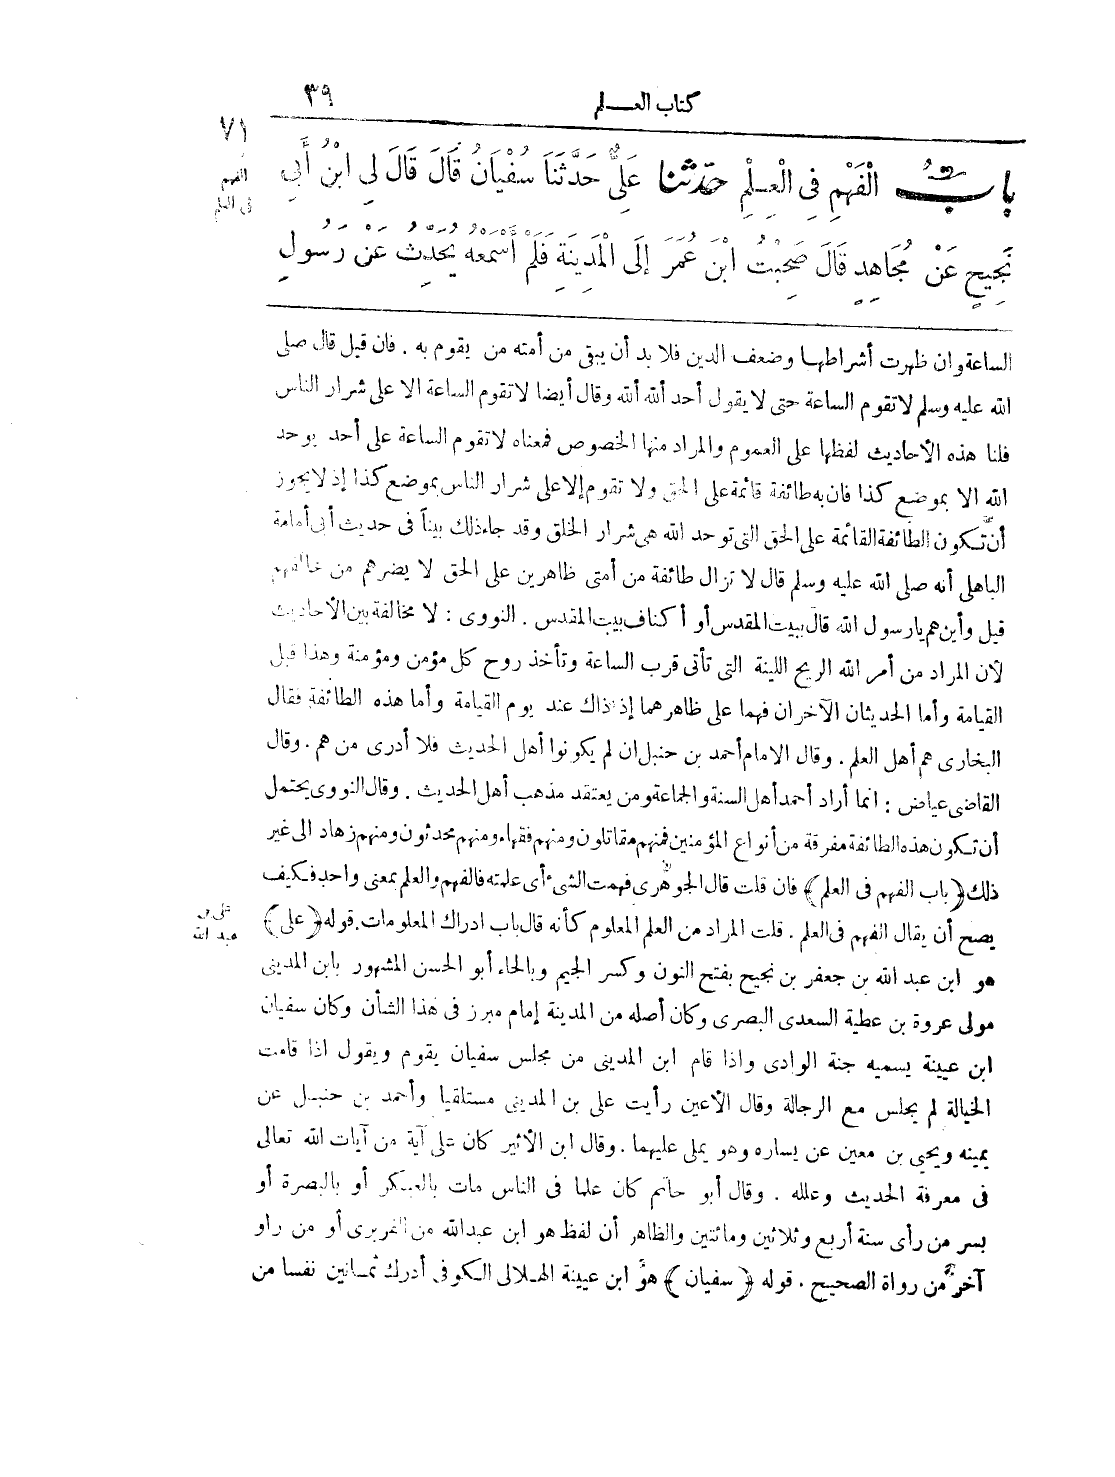 كتاب العلم ٣٩
٧١
الفهم
في العلم
بَابُ الْفَهْمِ فِي الْعِلْمِ حَدَّثَنَا عَلِيٌّ حَدَّثَنَا سُفْيَانُ قَالَ قَالَ لِي ابْنُ أَبِي
نَجِيحٍ عَنْ مُجَاهِدٍ قَالَ صَحِبْتُ ابْنَ عُمَرَ إِلَى الْمَدِينَةِ فَلَمْ أَسْمَعْهُ يُحَدِّثُ عَنْ رَسُولِ
الساعة وان ظهرت أشراطها وضعف الدين فلا بد أن يبقى من أمته من يقوم به . فان قيل قال صلى
الله عليه وسلم لا تقوم الساعة حتى لا يقول أحد ألله ألله وقال أيضا لا تقوم الساعة الا على شرار الناس
قلنا هذه الأحاديث لفظها على العموم والمراد منها الخصوص فمعناه لا تقوم الساعة على أحد يوحد
الله الا بموضع كذا فان به طائفة قائمة على الحق ولا تقوم إلا على شرار الناس بموضع كذا إذ لا يجوز
أن تكون الطائفة القائمة على الحق التى توحد الله هى شرار الخلق وقد جاء ذلك بيناً فى حديث أبى أمامة
الباهلى أنه صلى الله عليه وسلم قال لا تزال طائفة من أمتى ظاهرين على الحق لا يضرهم من خالفهم
قيل وأين هم يا رسول الله قال ببيت المقدس أو أكناف بيت المقدس . النووى : لا مخالفة بين الأحاديث
لأن المراد من أمر الله الريح اللينة التى تأتى قرب الساعة وتأخذ روح كل مؤمن ومؤمنة وهذا قبل
القيامة وأما الحديثان الآخران فهما على ظاهرهما إذ ذاك عند يوم القيامة وأما هذه الطائفة فقال
البخارى هم أهل العلم . وقال الامام أحمد بن حنبل ان لم يكونوا أهل الحديث فلا أدرى من هم . وقال
القاضى عياض : انما أراد أحمد أهل السنة والجماعة ومن يعتقد مذهب أهل الحديث . وقال النووى يحتمل
أن تكون هذه الطائفة مفرقة من أنواع المؤمنين فمنهم مقاتلون ومنهم فقهاء ومنهم محدثون ومنهم زهاد الى غير
ذلك (باب الفهم فى العلم) فان قلت قال الجوهرى فهمت الشىء أى علمته فالفهم والعلم بمعنى واحد فكيف
يصح أن يقال الفهم فى العلم . قلت المراد من العلم المعلوم كأنه قال باب ادراك المعلومات . قوله (على)
على بن
عبد الله
هو ابن عبد الله بن جعفر بن نجيح بفتح النون وكسر الجيم وبالحاء أبو الحسن المشهور بابن المدينى
مولى عروة بن عطية السعدى البصرى وكان أصله من المدينة إمام مبرز فى هذا الشأن وكان سفيان
ابن عيينة يسميه جنة الوادى واذا قام ابن المدينى من مجلس سفيان يقوم ويقول اذا قامت
الخيالة لم يجلس مع الرجالة وقال الأعين رأيت على بن المدينى مستلقيا وأحمد بن حنبل عن
يمينه ويحيى بن معين عن يساره وهو يملى عليهما . وقال ابن الأثير كان على آية من آيات الله تعالى
فى معرفة الحديث وعلله . وقال أبو حاتم كان علما فى الناس مات بالعسكر أو بالبصرة أو
بسر من رأى سنة أربع وثلاثين ومائتين والظاهر أن لفظ هو ابن عبدالله من الفربرى أو من راو
آخر من رواة الصحيح . قوله (سفيان) هو ابن عيينة الهلالى الكوفى أدرك ثمانين نفسا من